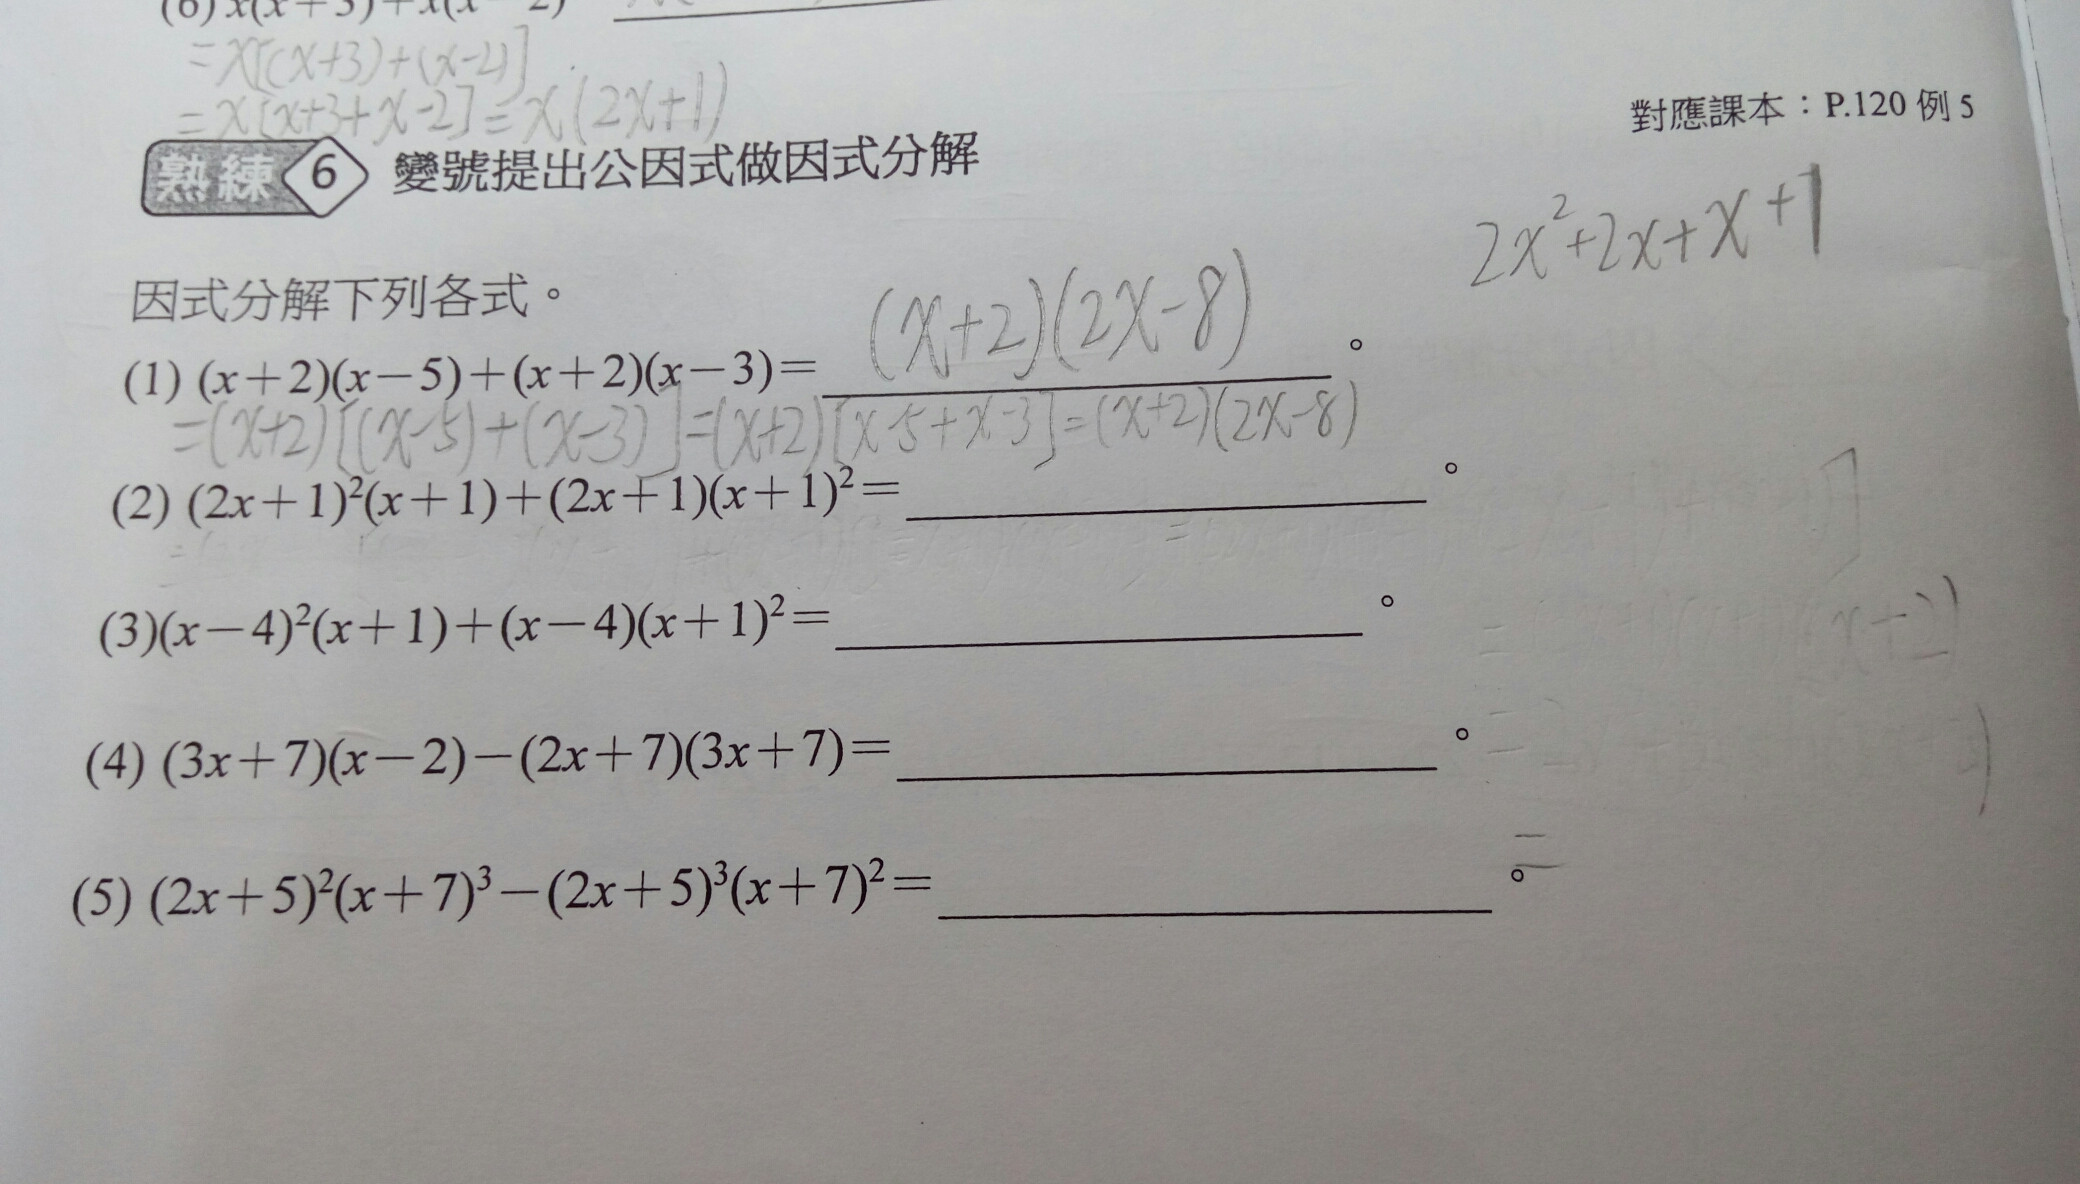 (6) x(x+3)+x(x-2)
=x[(x+3)+(x-2)]
=x[x+3+x-2]=x(2x+1)
對應課本：P.120 例 5
熟練 6 變號提出公因式做因式分解
2x²+2x+x+1
因式分解下列各式。
(1) (x+2)(x-5)+(x+2)(x-3)= (x+2)(2x-8) 。
=(x+2)[(x-5)+(x-3)]=(x+2)[x-5+x-3]=(x+2)(2x-8)
(2) (2x+1)²(x+1)+(2x+1)(x+1)²= 。
(3)(x-4)²(x+1)+(x-4)(x+1)²= 。
(4) (3x+7)(x-2)-(2x+7)(3x+7)= 。
(5) (2x+5)²(x+7)³-(2x+5)³(x+7)²= 。